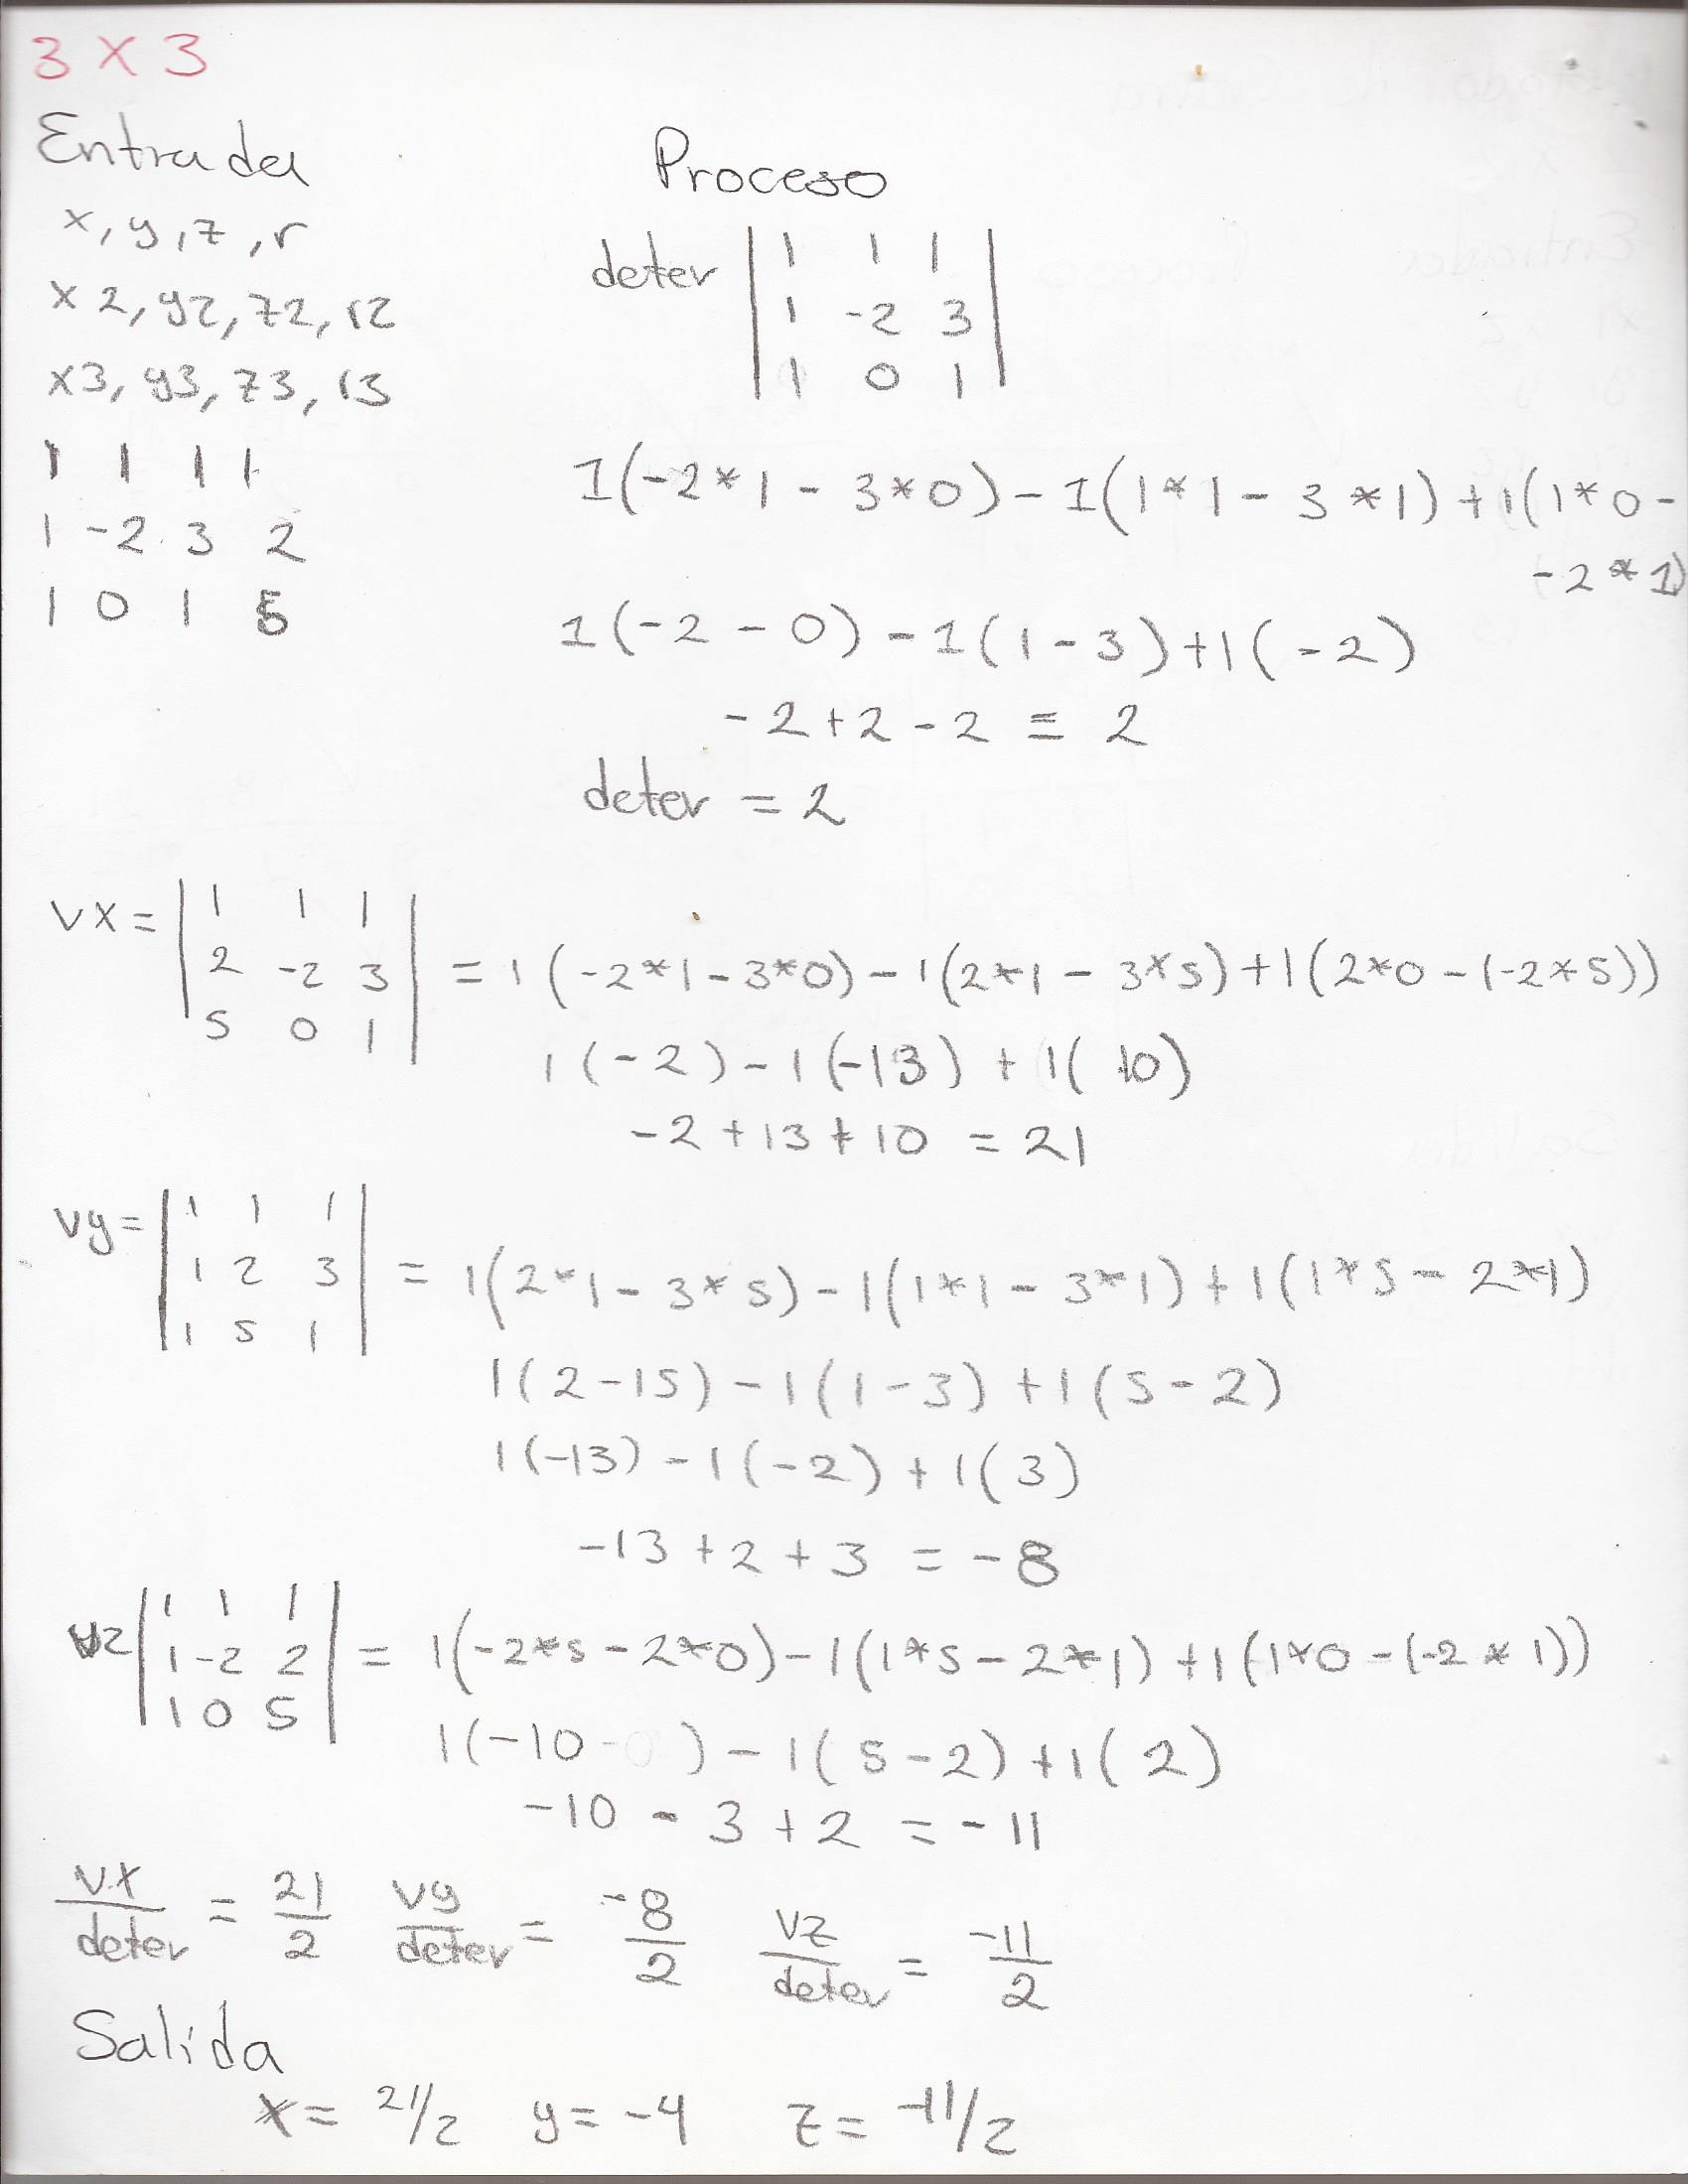 3 x 3
Entrada
x, y, z, r
x2, y2, z2, r2
x3, y3, z3, r3
1 1 1 1
1 -2 3 2
1 0 1 5
Proceso
deter | 1 1 1 |
| 1 -2 3 |
| 1 0 1 |
1(-2*1 - 3*0) - 1(1*1 - 3*1) + 1(1*0 -
-2*1)
1(-2 - 0) - 1(1-3) + 1(-2)
-2+2-2 = 2
deter = 2
vx = | 1 1 1 |
| 2 -2 3 | = 1(-2*1-3*0) - 1(2*1 - 3*5) + 1(2*0 - (-2*5))
| 5 0 1 |
1(-2) - 1(-13) + 1(10)
-2 + 13 + 10 = 21
vy = | 1 1 1 |
| 1 2 3 | = 1(2*1 - 3*5) - 1(1*1 - 3*1) + 1(1*5 - 2*1)
| 1 5 1 |
1(2-15) - 1(1-3) + 1(5-2)
1(-13) - 1(-2) + 1(3)
-13 + 2 + 3 = -8
vz | 1 1 1 |
| 1 -2 2 | = 1(-2*5 - 2*0) - 1(1*5 - 2*1) + 1(1*0 - (-2*1))
| 1 0 5 |
1(-10-0) - 1(5-2) + 1(2)
-10 - 3 + 2 = -11
vx/deter = 21/2 vy/deter = -8/2 vz/deter = -11/2
Salida
x = 21/2 y = -4 z = -11/2